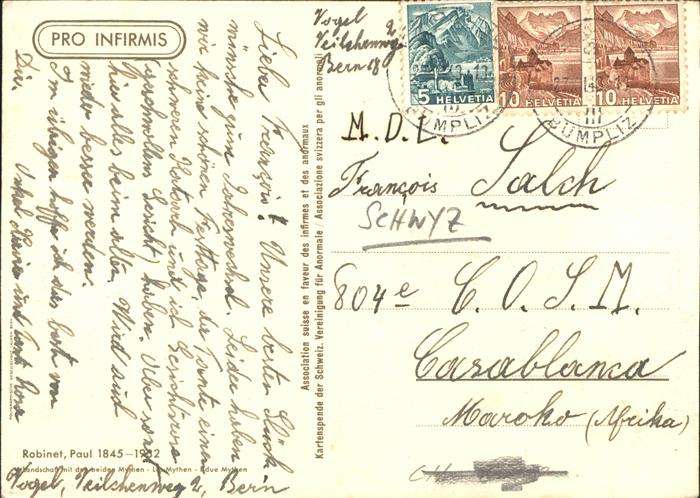 PRO INFIRMIS
Vogel
Veilchenweg 2
Bern 18
5 HELVETIA
10 HELVETIA
10 HELVETIA
BÜMPLIZ
BÜMPLIZ
Lieber François! Unsere besten Glück-
wünsche zum Jahreswechsel. Leider haben
wir keine schönen Festtage, da Tante einen
schweren Katarrh und ich Gesichtsrose
(geschwollenes Gesicht) haben. Aber sonst
hier alles beim alten. Wird auch
wieder besser werden.
Im übrigen hoffe ich das beste von
Dir.
Onkel und Tante Rosa
Association suisse en faveur des infirmes et des anormaux
Kartenspende der Schweiz. Vereinigung für Anormale / Associazione svizzera per gli anormali
M. D. L.
François Salch
SCHWYZ
804e C. O. S. M.
Casablanca
Maroko (Afrika)
Robinet, Paul 1845–1932
Landschaft mit den beiden Mythen - Les Mythen - I due Mythen
Vogel, Veilchenweg 2, Bern